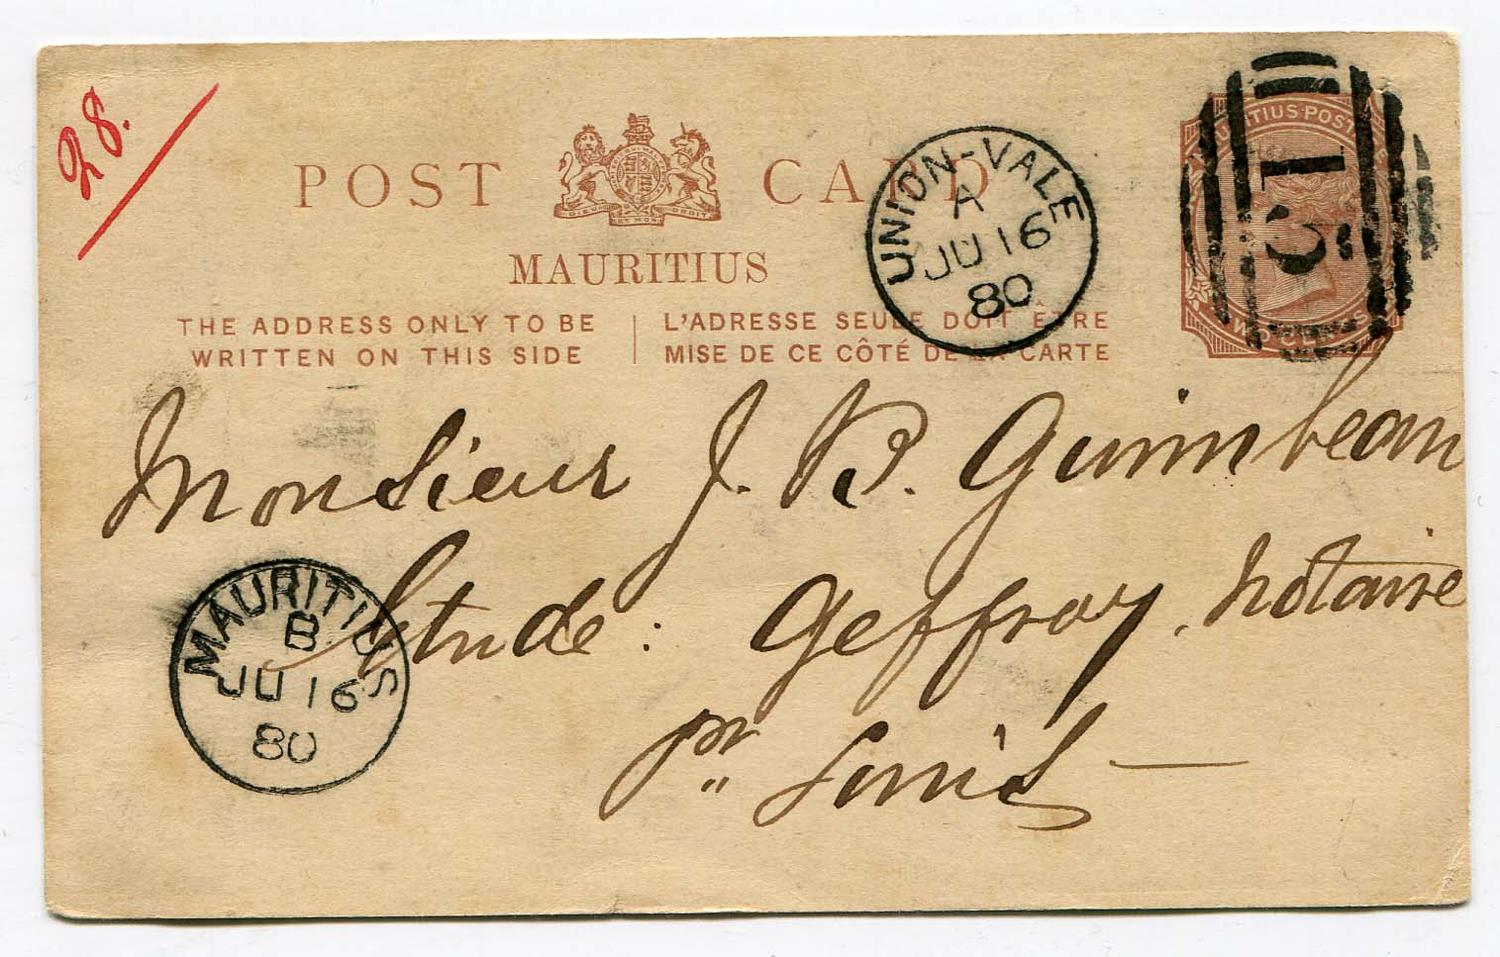 28.
POST CARD
DIEU ET MON DROIT
MAURITIUS
THE ADDRESS ONLY TO BE
WRITTEN ON THIS SIDE
L'ADRESSE SEULE DOIT ETRE
MISE DE CE CÔTÉ DE LA CARTE
UNION-VALE
A
JU 16
80
MAURITIUS POSTAGE
Monsieur J. B. Guimbeau
Etude: Geffroy, notaire
Pt Louis
MAURITIUS
B
JU 16
80